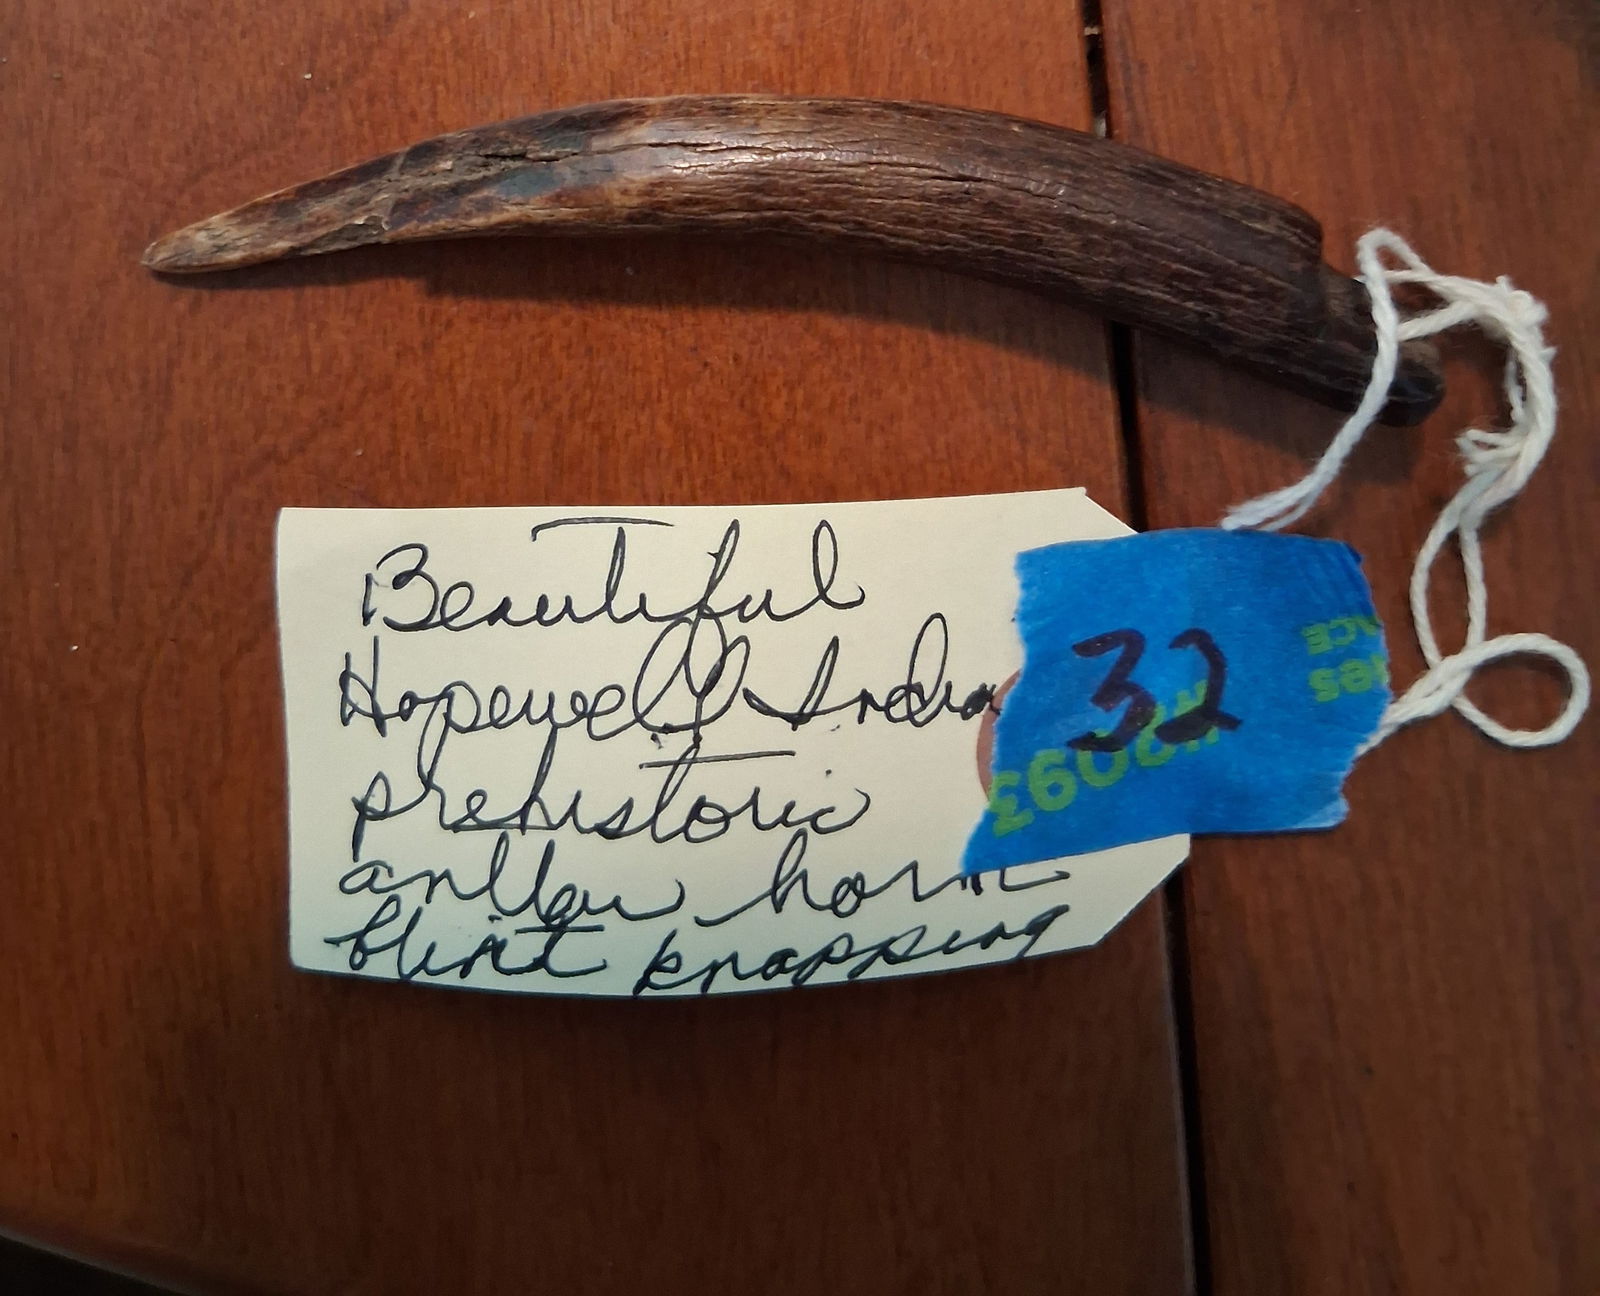 Beautiful
Hopewell India
prehistoric
antler horn
flint knapping
32
#2093